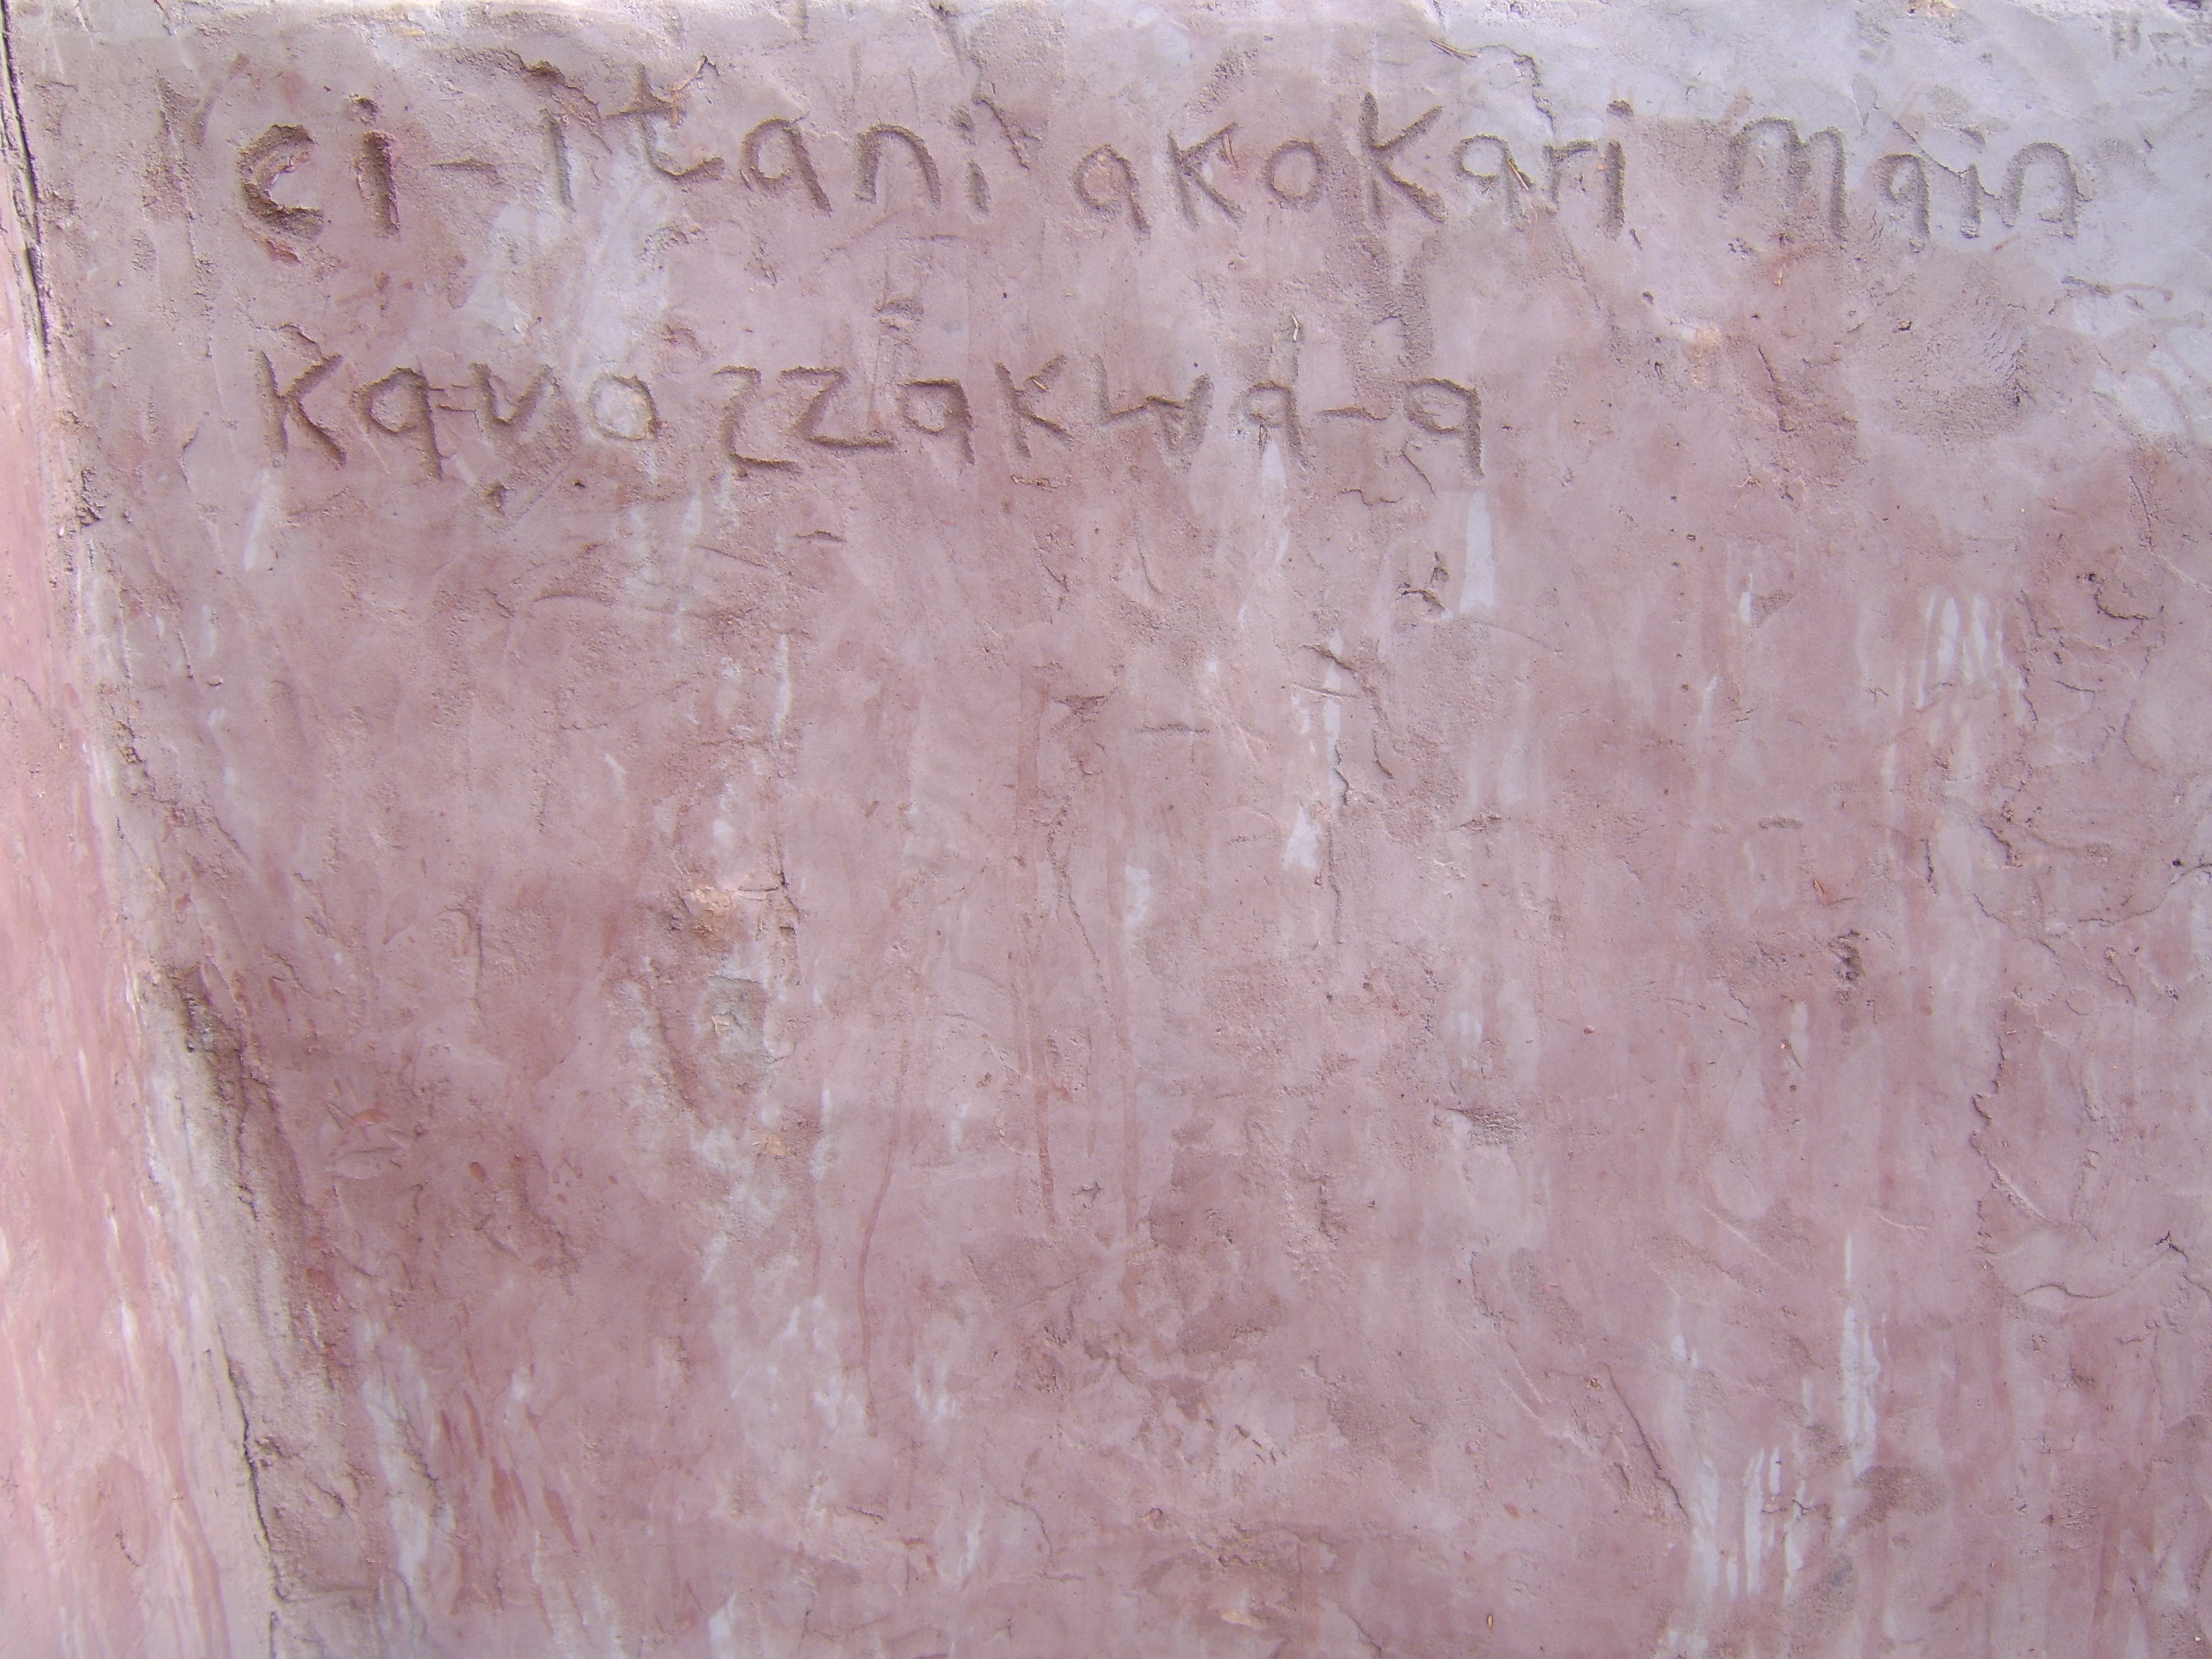 ci-itani akokari main
kavazzakwa-a